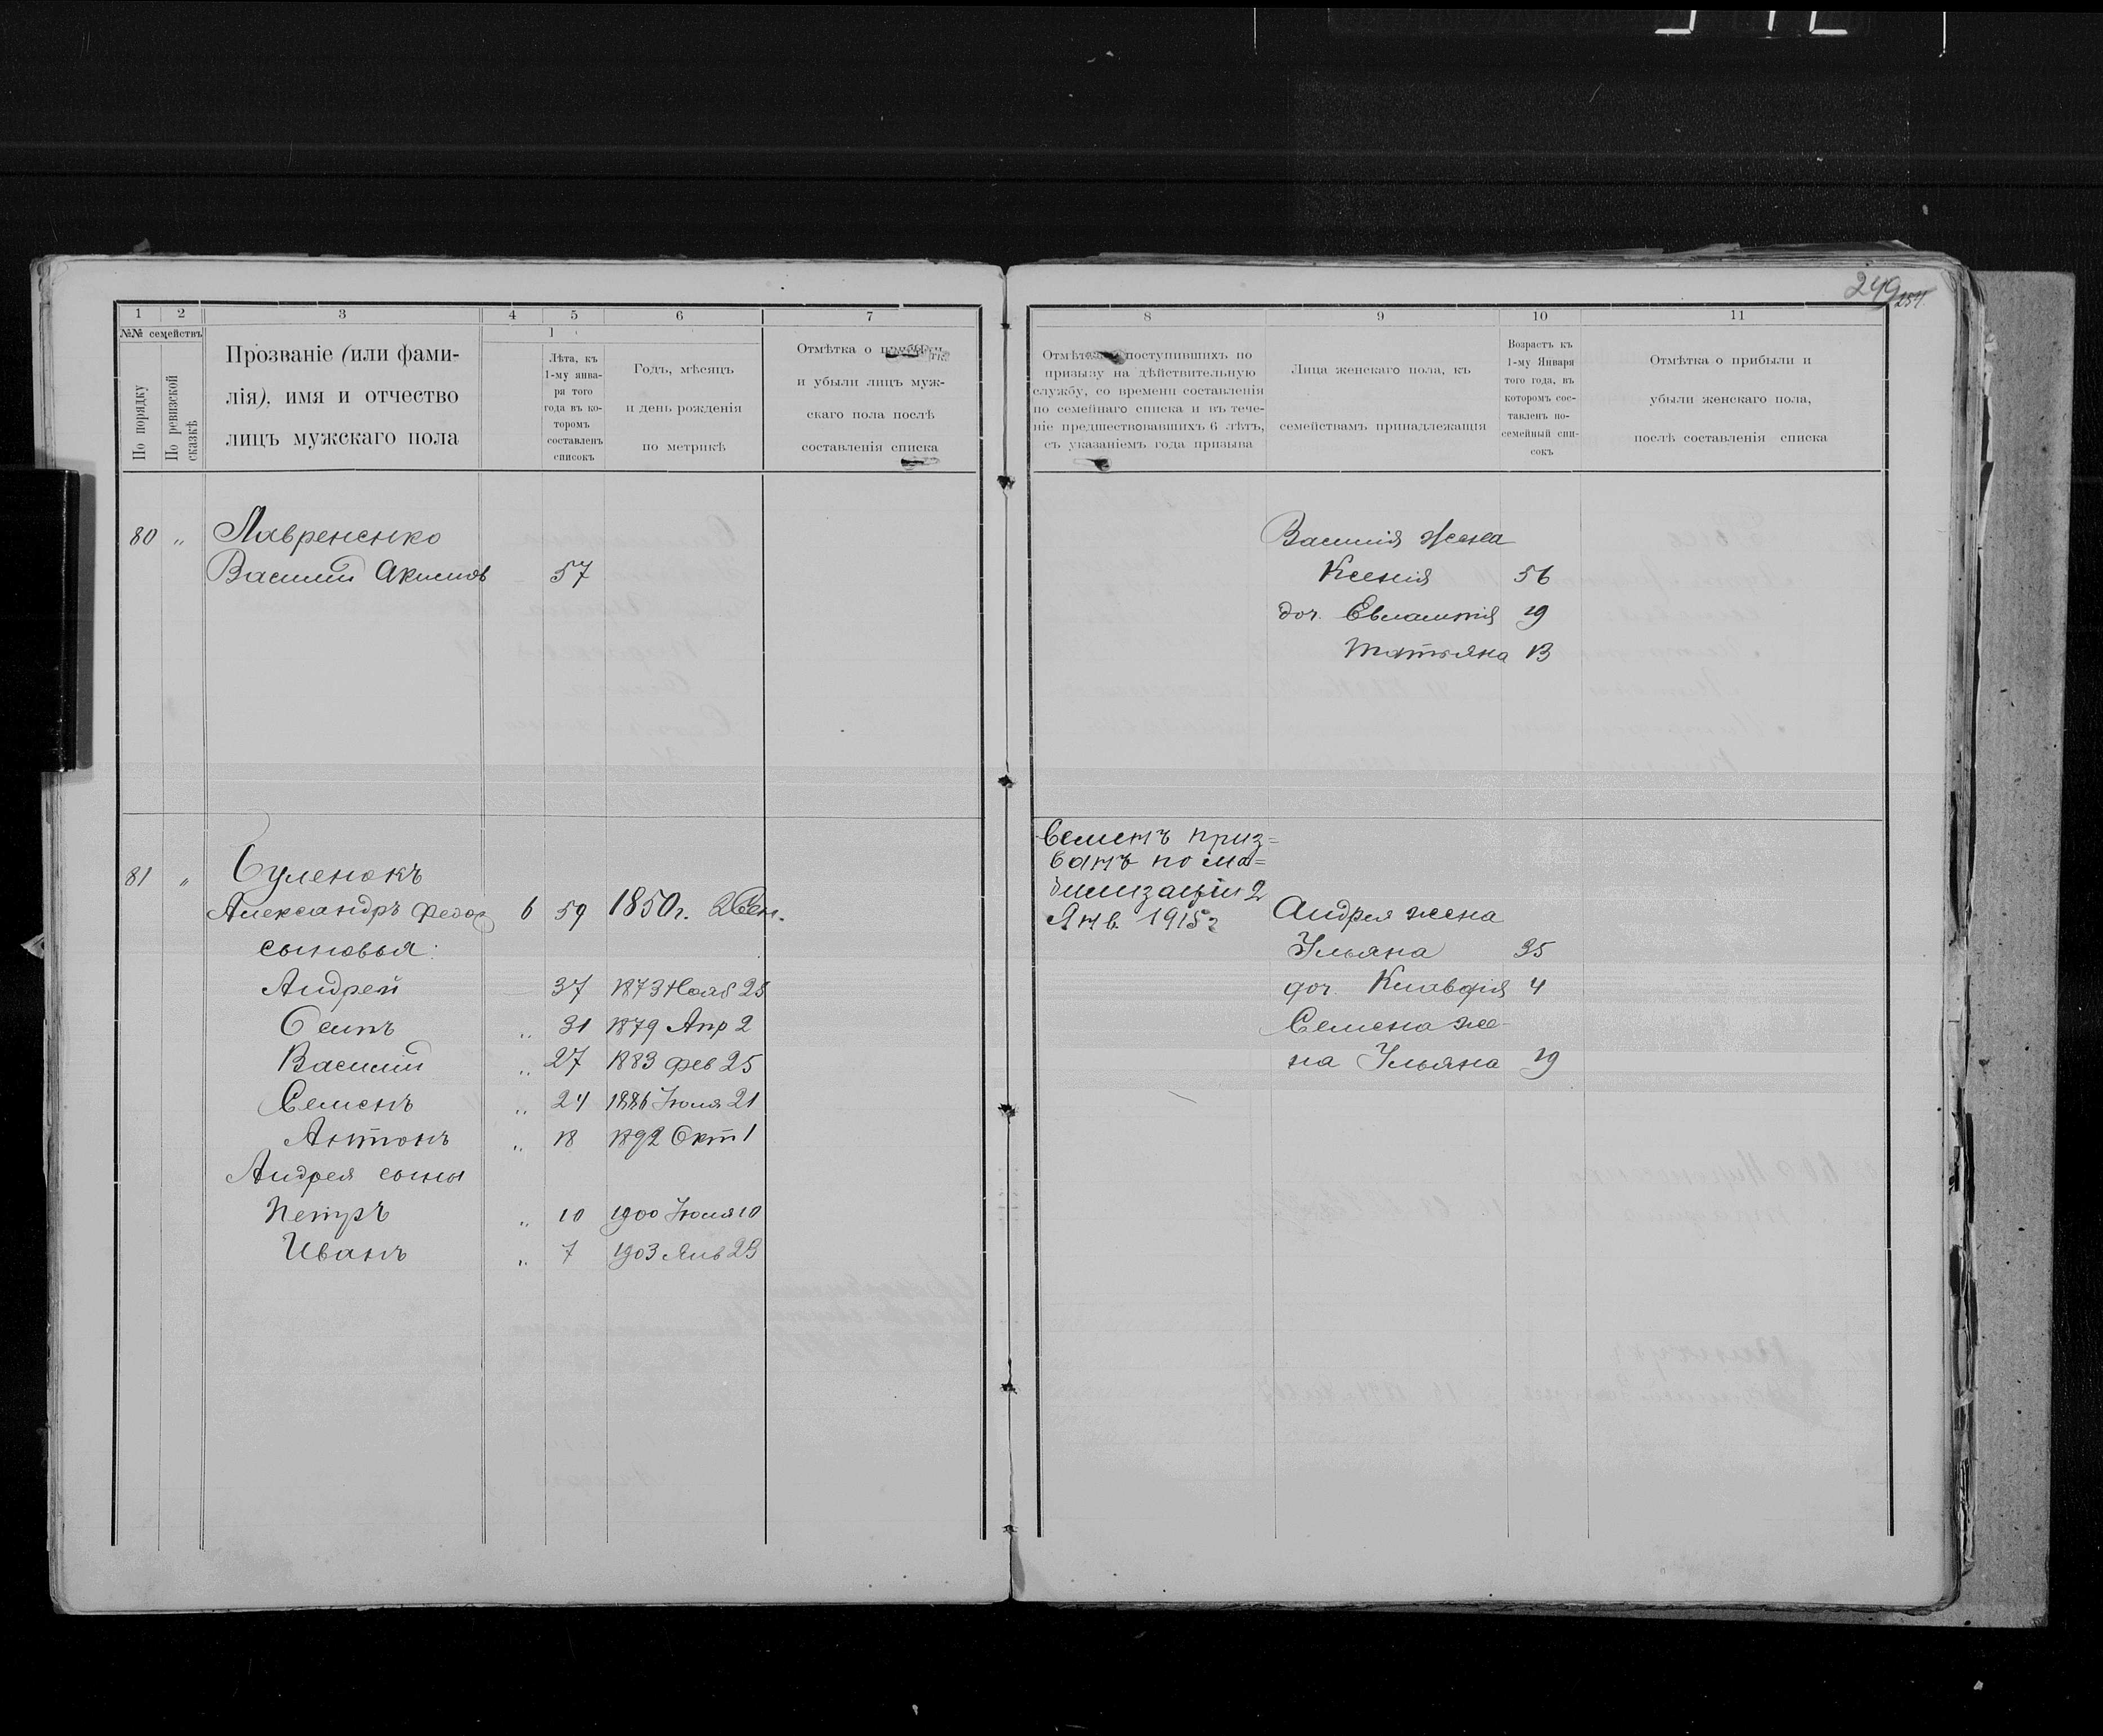 249 254
1 2 3 4 5 6 7
№№ семействъ
По порядку
По ревизской сказкѣ
Прозваніе (или фами-
лія), имя и отчество
лицъ мужскаго пола
Лѣта, къ
1-му янва-
ря того
года въ ко-
торомъ
составленъ
списокъ
Годъ, мѣсяцъ
и день рожденія
по метрикѣ
Отмѣтка о
и убыли лицъ муж-
скаго пола послѣ
составленія списка
80 " Лавренсико
Василій Акимовъ 57
81 " Суленокъ
Александръ Федор 6 59 1850 г. 2 Сен.
сыновья:
Андрей 37 1873 Нояб 25
Осипъ " 31 1879 Апр 2
Василій " 27 1883 Фев 25
Семенъ " 24 1886 Іюля 21
Антонъ " 18 1892 Окт 1
Андрея сыны
Петръ " 10 1900 Іюля 10
Иванъ " 7 1903 Янв 29
8 9 10 11
поступившихъ по
призыву на дѣйствительную
службу, со времени составленія
по семейнаго списка и въ тече-
ніе предшествовавшихъ 6 лѣтъ,
съ указаніемъ года призыва
Лица женскаго пола, къ
семействамъ принадлежащія
Возрастъ къ
1-му Января
того года, въ
которомъ сос-
тавленъ по-
семейный спи-
сокъ
Отмѣтка о прибыли и
убыли женскаго пола,
послѣ составленія списка
Василія жена
Ксенія 56
доч. Евлампія 19
Татьяна 13
Семенъ приз=
ванъ по мо=
билизаціи 2
Янв. 1915 г
Андрея жена
Ульяна 35
доч. Клавдія 4
Семена же-
на Ульяна 19